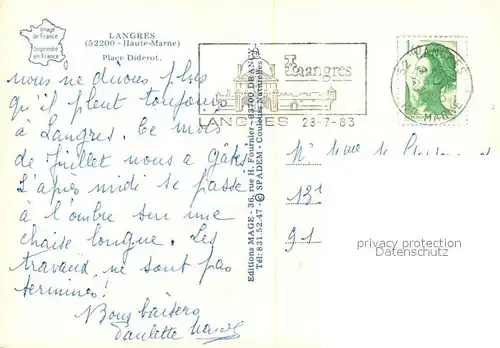 Image
de France
Imprimée
en France
LANGRES
(52200 - Haute-Marne)
Place Diderot.
nous ne dirons plus
qu'il pleut toujours
à Langres. Ce mois
de Juillet nous a gâtés.
L'après midi se passe
à l'ombre sur une
chaise longue. Les
travaux ne sont pas
terminés!
Bons baisers
Paulette
Editions MAGE - 36, rue H. Fournier - 93700 DRANCY
Tél: 831.52.47 - © SPADEM - Couleurs Naturelles
Langres
LANGRES 28-7-83
52 LANGRES
HTE MARNE
131
91
privacy protection
Datenschutz